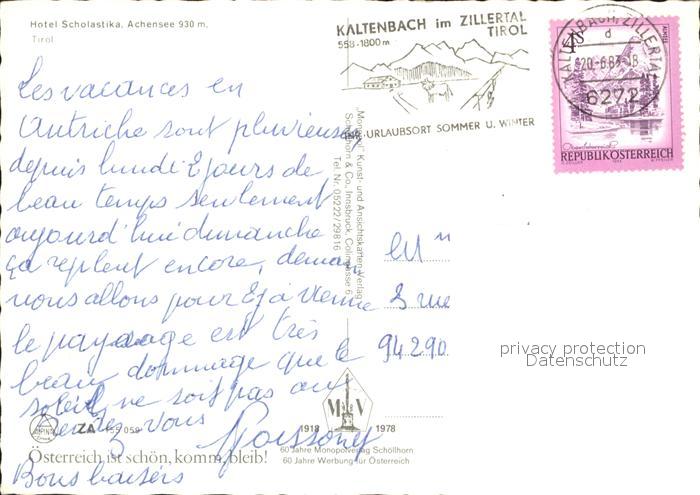 Hotel Scholastika, Achensee 930 m,
Tirol
KALTENBACH im ZILLERTAL
TIROL
558-1800 m
URLAUBSORT SOMMER U. WINTER
KALTENBACH, ZILLERTAL
d
20-6.83-18
6272
4S
REPUBLIK ÖSTERREICH
Les vacances en
Autriche sont pluvieuses
depuis lundi 2 jours de
beau temps seulement
aujourd'hui dimanche
ça repleut encore, demain
nous allons pour 2j à Vienne
le paysage est très
beau dommage que le
soleil ne soit pas au
rendez-vous
Bons baisers
"Monopol" Kunst- und Ansichtskarten-Verlag
Schöllhorn & Co., Innsbruck, Colingasse 6
Tel. Nr. 05222/29816
3 rue
94290
privacy protection
Datenschutz
ZA 155 059
Österreich ist schön, komm, bleib!
M V
1918 1978
60 Jahre Monopolverlag Schöllhorn
60 Jahre Werbung für Österreich